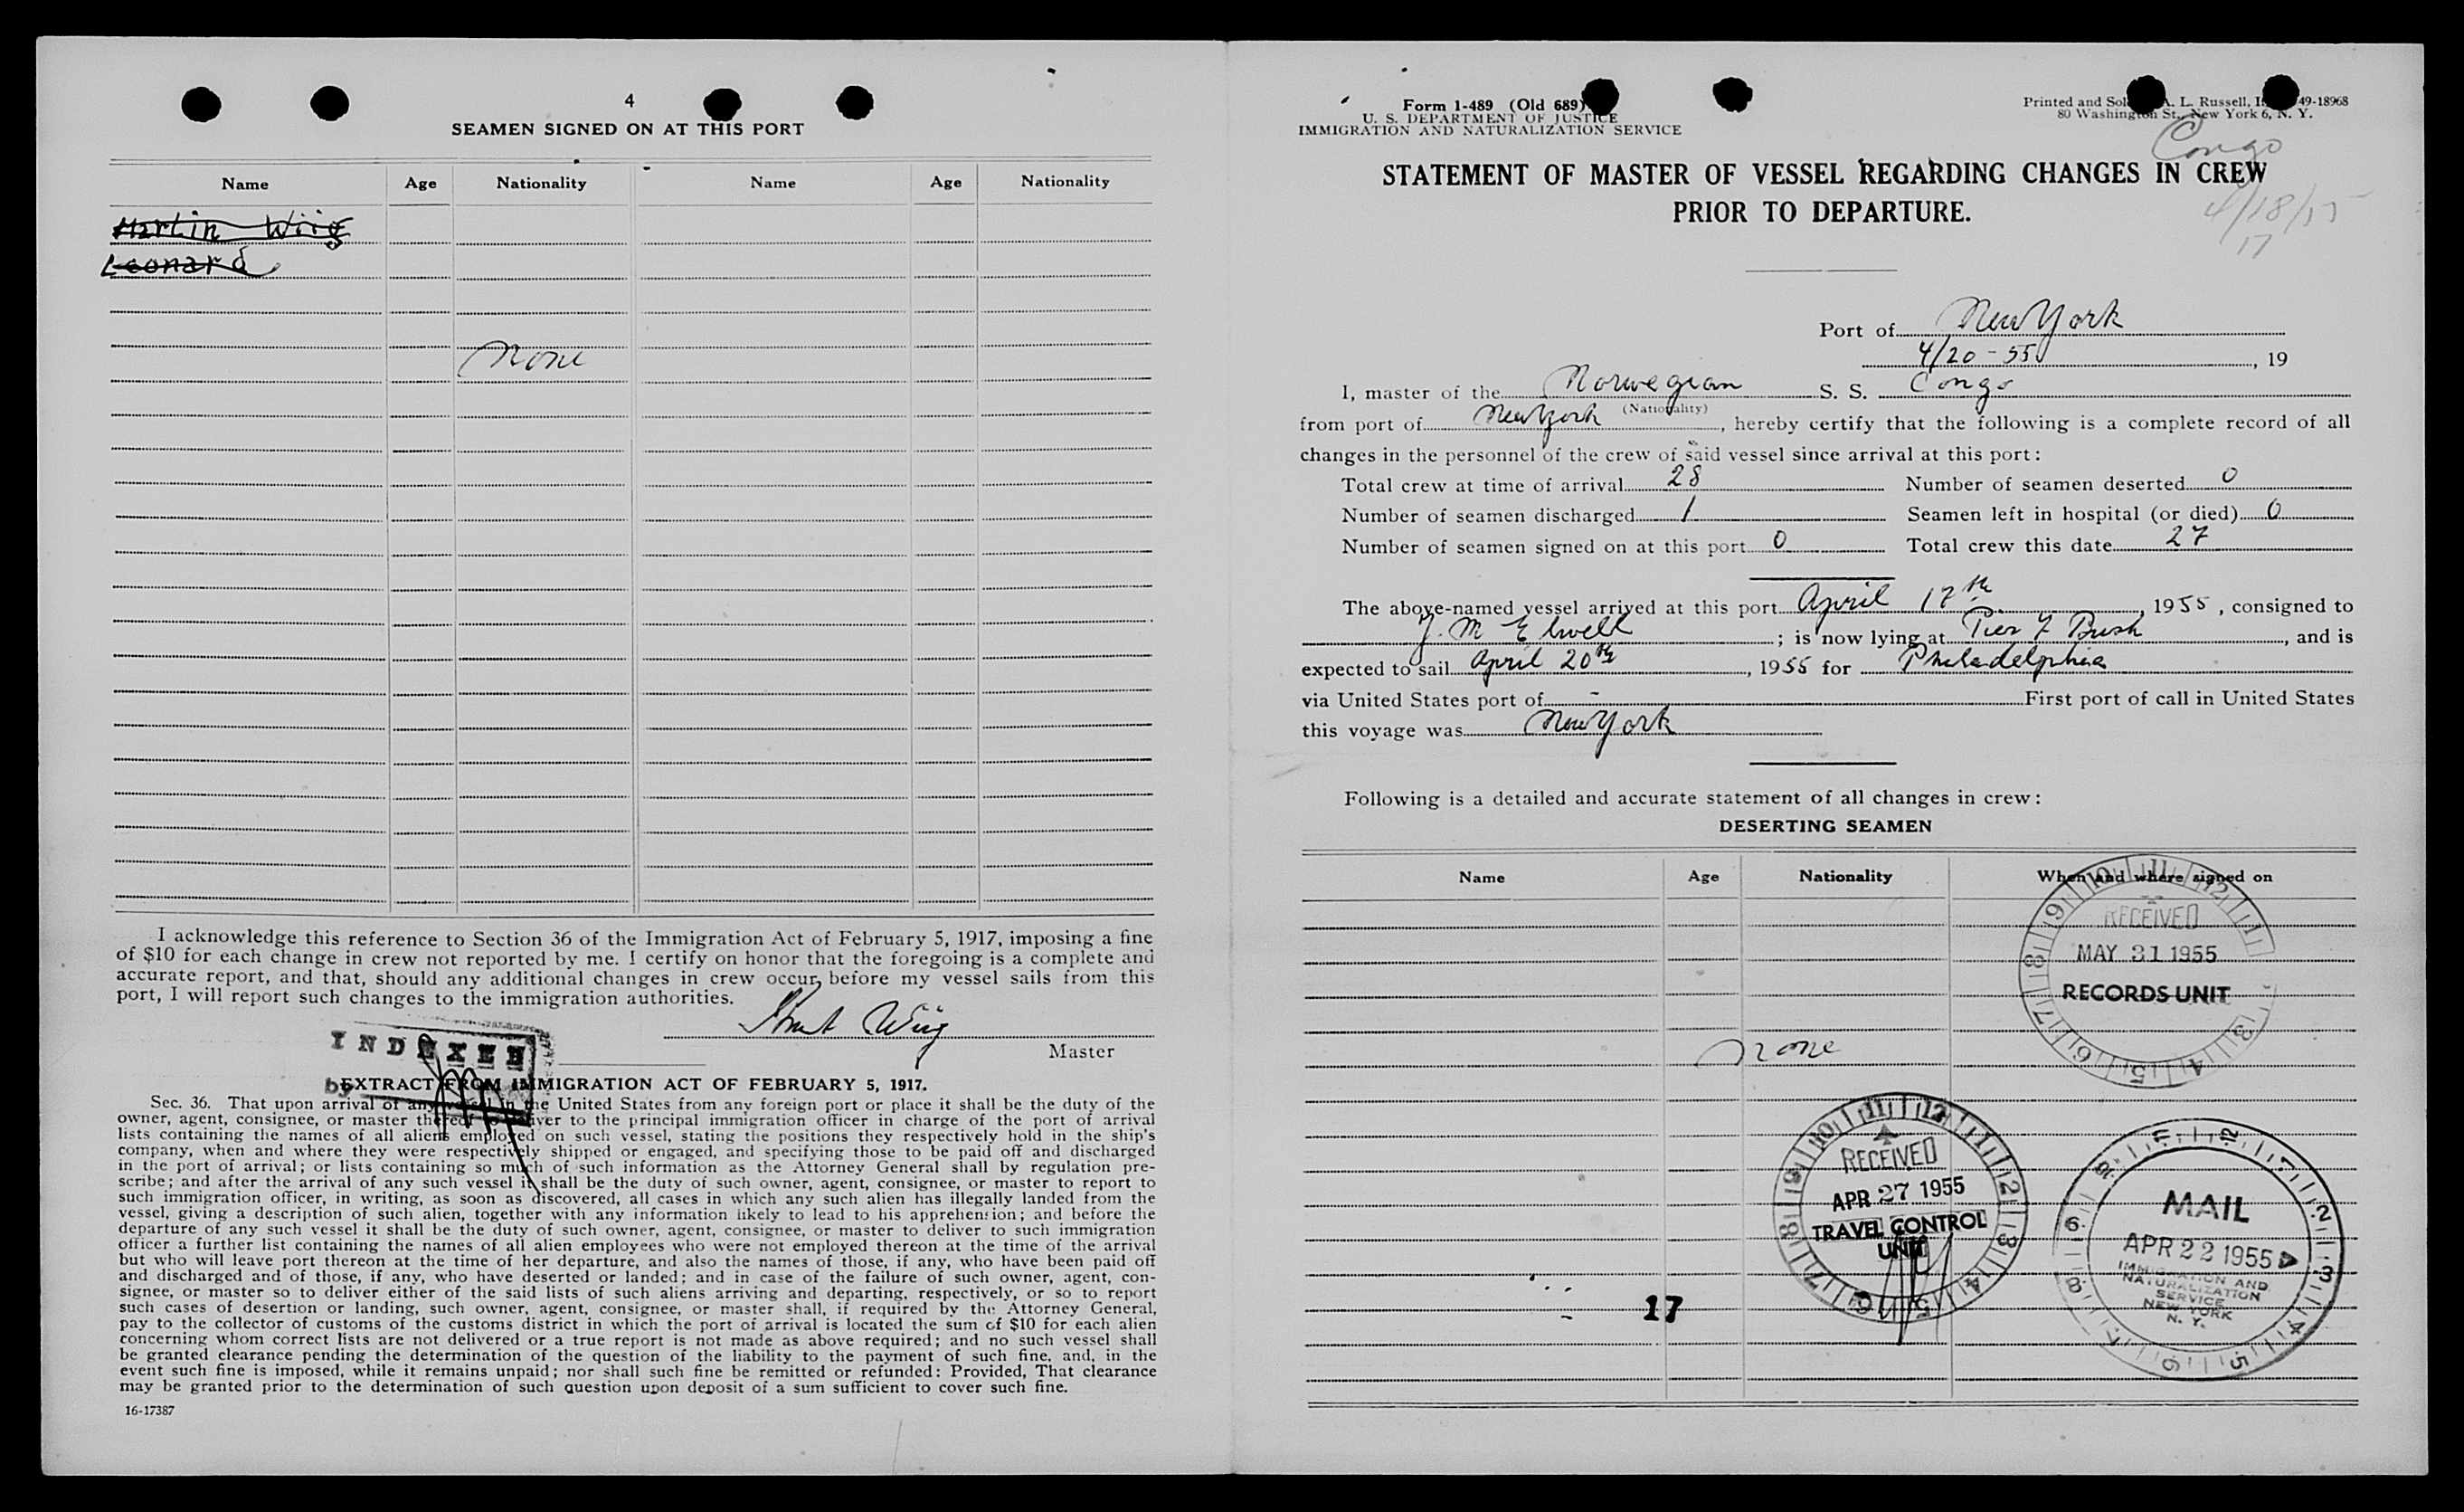 4
SEAMEN SIGNED ON AT THIS PORT
Name Age Nationality Name Age Nationality
Martin Wiig
Leonard
None
I acknowledge this reference to Section 36 of the Immigration Act of February 5, 1917, imposing a fine
of $10 for each change in crew not reported by me. I certify on honor that the foregoing is a complete and
accurate report, and that, should any additional changes in crew occur, before my vessel sails from this
port, I will report such changes to the immigration authorities.
Wiig
Master
INDEXED
by
EXTRACT FROM IMMIGRATION ACT OF FEBRUARY 5, 1917.
Sec. 36. That upon arrival of any vessel in the United States from any foreign port or place it shall be the duty of the
owner, agent, consignee, or master thereof to deliver to the principal immigration officer in charge of the port of arrival
lists containing the names of all aliens employed on such vessel, stating the positions they respectively hold in the ship's
company, when and where they were respectively shipped or engaged, and specifying those to be paid off and discharged
in the port of arrival; or lists containing so much of such information as the Attorney General shall by regulation pre-
scribe; and after the arrival of any such vessel it shall be the duty of such owner, agent, consignee, or master to report to
such immigration officer, in writing, as soon as discovered, all cases in which any such alien has illegally landed from the
vessel, giving a description of such alien, together with any information likely to lead to his apprehension; and before the
departure of any such vessel it shall be the duty of such owner, agent, consignee, or master to deliver to such immigration
officer a further list containing the names of all alien employees who were not employed thereon at the time of the arrival
but who will leave port thereon at the time of her departure, and also the names of those, if any, who have been paid off
and discharged and of those, if any, who have deserted or landed; and in case of the failure of such owner, agent, con-
signee, or master so to deliver either of the said lists of such aliens arriving and departing, respectively, or so to report
such cases of desertion or landing, such owner, agent, consignee, or master shall, if required by the Attorney General,
pay to the collector of customs of the customs district in which the port of arrival is located the sum of $10 for each alien
concerning whom correct lists are not delivered or a true report is not made as above required; and no such vessel shall
be granted clearance pending the determination of the question of the liability to the payment of such fine, and, in the
event such fine is imposed, while it remains unpaid; nor shall such fine be remitted or refunded: Provided, That clearance
may be granted prior to the determination of such question upon deposit of a sum sufficient to cover such fine.
16-17387
Form 1-489 (Old 689)
U. S. DEPARTMENT OF JUSTICE
IMMIGRATION AND NATURALIZATION SERVICE
Printed and Sol A. L. Russell, 49-18968
80 Washington St., New York 6, N. Y.
Congo
STATEMENT OF MASTER OF VESSEL REGARDING CHANGES IN CREW
PRIOR TO DEPARTURE.
4/18/55
17
Port of New York
4/20-55, 19
I, master of the Norwegian S. S. Congo
(Nationality)
from port of New York, hereby certify that the following is a complete record of all
changes in the personnel of the crew of said vessel since arrival at this port:
Total crew at time of arrival 28 Number of seamen deserted 0
Number of seamen discharged 1 Seamen left in hospital (or died) 0
Number of seamen signed on at this port 0 Total crew this date 27
The above-named vessel arrived at this port April 17th, 1955, consigned to
J. M Elwell; is now lying at Pier 7 Bush, and is
expected to sail April 20th, 1955 for Philadelphia
via United States port of - First port of call in United States
this voyage was New York
Following is a detailed and accurate statement of all changes in crew:
DESERTING SEAMEN
Name Age Nationality When and where signed on
RECEIVED
MAY 31 1955
RECORDS UNIT
None
RECEIVED
APR 27 1955
TRAVEL CONTROL
UNIT
MAIL
APR 22 1955
IMMIGRATION AND
NATURALIZATION
SERVICE
NEW YORK
N. Y.
17